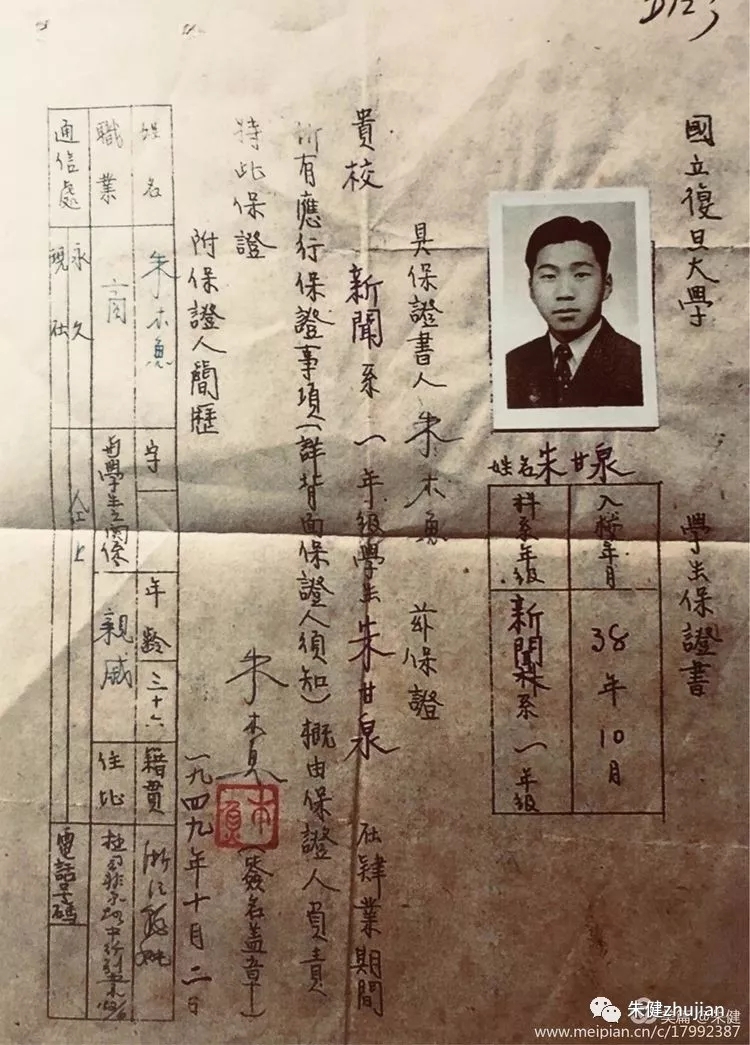 國立復旦大學　學生保證書
姓名朱甘泉
入校年月　38年10月
科系年级　新聞系　一年级
具保證書人朱木魚　茲保證
貴校　新聞系　一年级學生朱甘泉　在肄業期間
所有應行保證事項（詳背面保證人須知）概由保證人負責
特此保證
朱木魚（簽名盖章）
附保證人簡歷
一九四九年十月二日
姓名　朱木魚　字　年齡　三十六　籍貫　浙江
職業　商　與學生之關係　親戚　住址
通信處　永久　現在　仝上　電話号碼
朱健zhujian
美篇 @朱健
www.meipian.cn/c/17992387